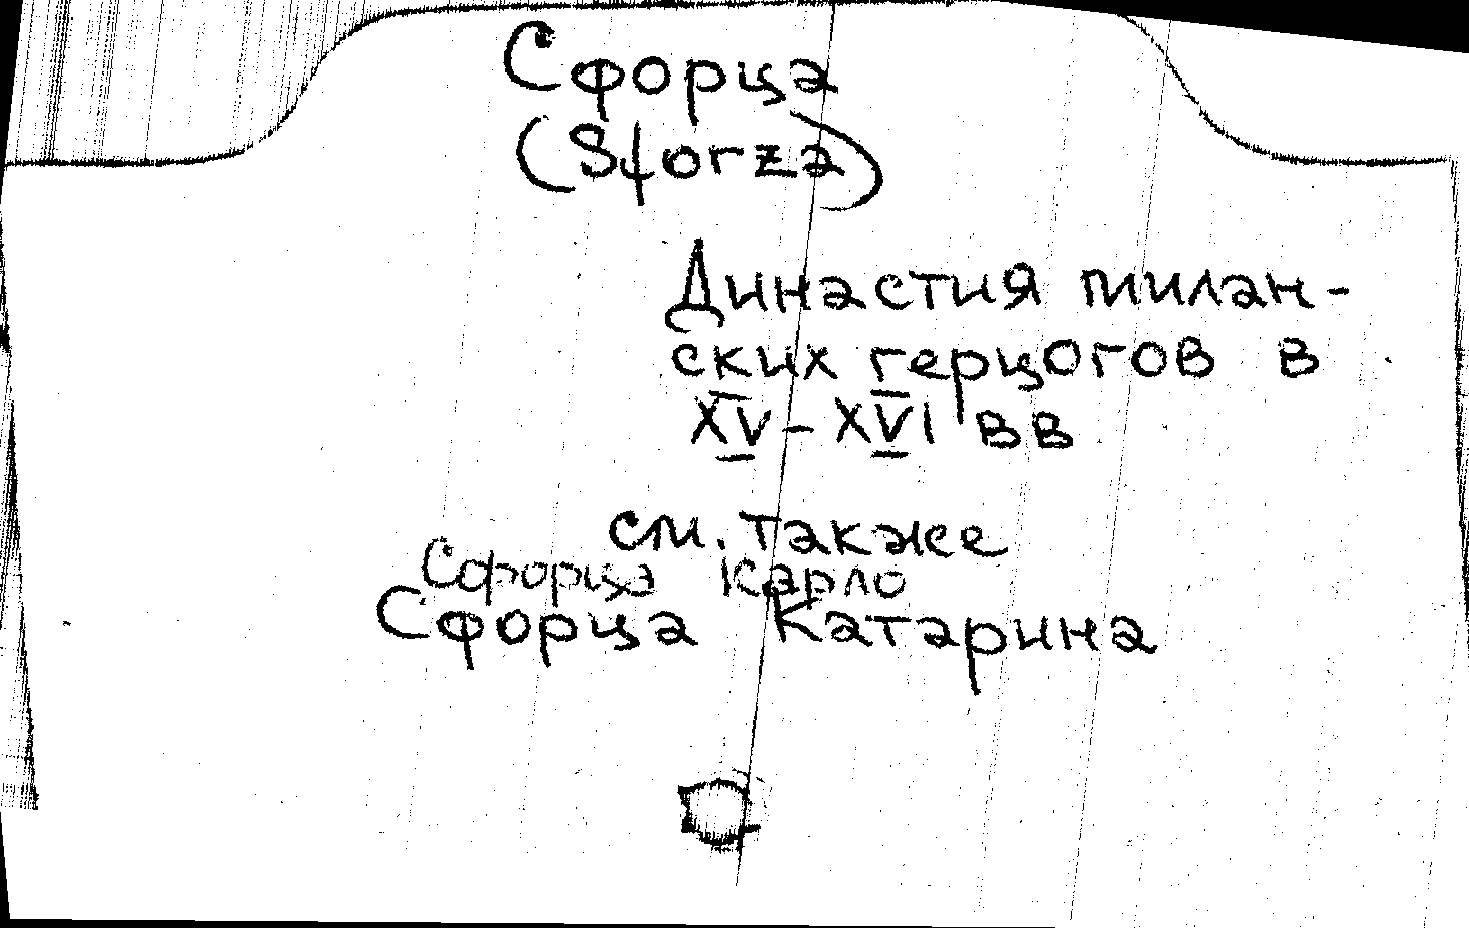 Сфорца
(Sforza)
Династия милан-
ских герцогов в
XV-XVI вв
см. также
Сфорца Карло
Сфорца Катарина